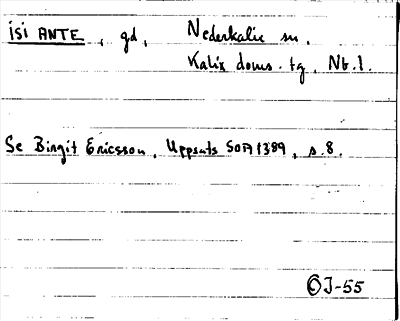 ISI ANTE, gd, Nederkalix sn,
Kalix doms. tg, Nb.l.
Se Birgit Ericsson, Uppsats SOFI 1389, s.8.
OJ-55